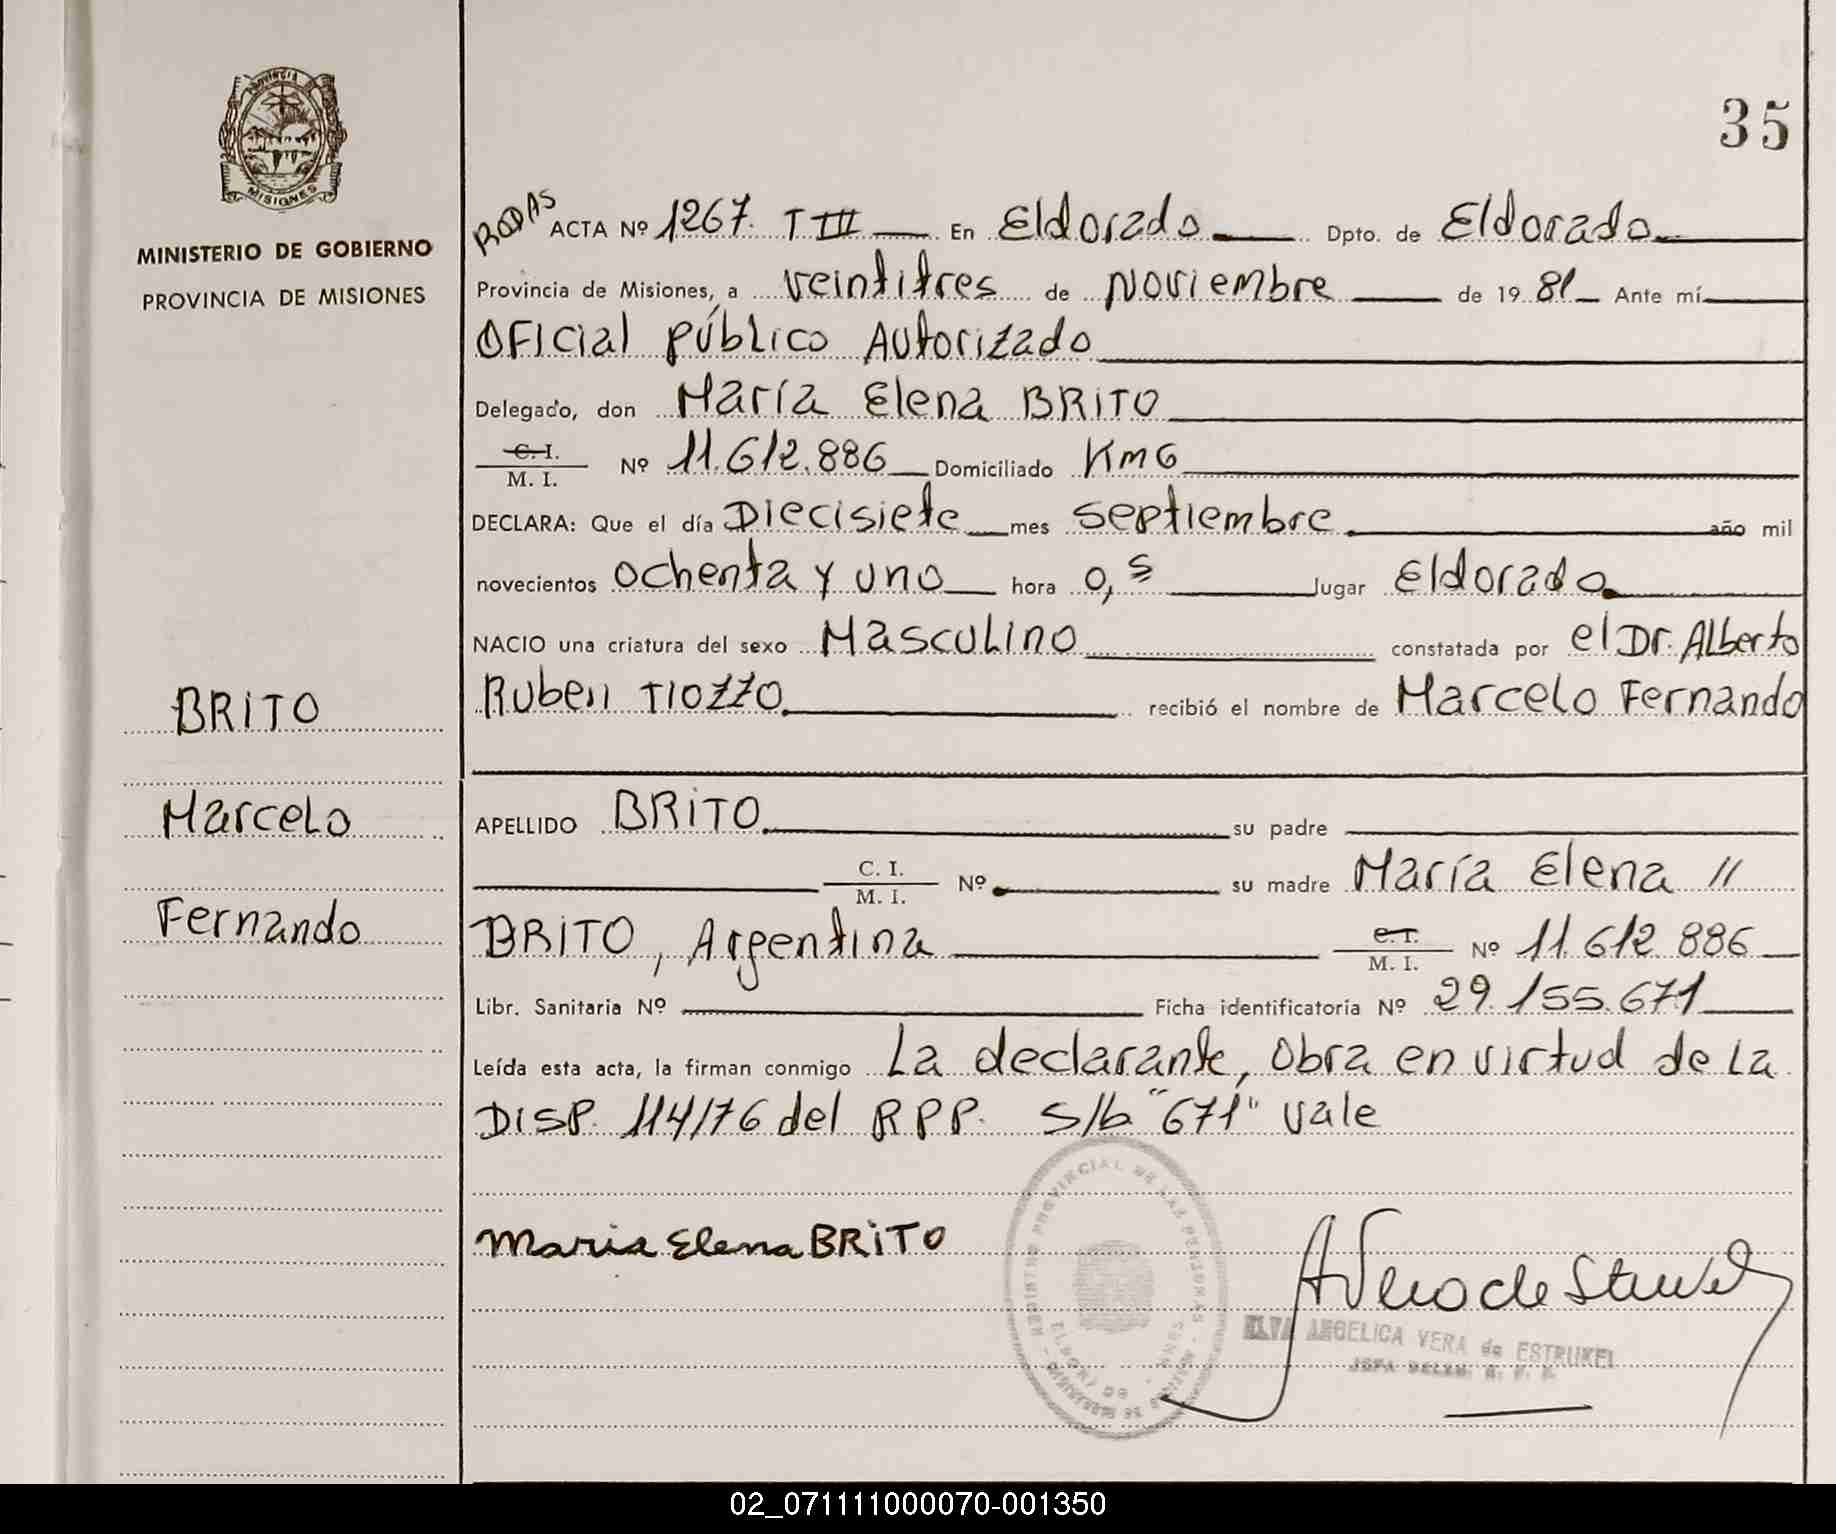 PROVINCIA
MISIONES
MINISTERIO DE GOBIERNO
PROVINCIA DE MISIONES
BRITO
Marcelo
Fernando
35
RODAS ACTA Nº 1267. T III En Eldorado Dpto. de Eldorado
Provincia de Misiones, a veintitres de Noviembre de 19 81 Ante mí
Oficial Público Autorizado
Delegado, don María Elena BRITO
C. I.
M. I. Nº 11.612.886 Domiciliado Km 6
DECLARA: Que el día Diecisiete mes septiembre año mil
novecientos ochenta y uno hora 0,5 lugar Eldorado
NACIO una criatura del sexo Masculino constatada por el Dr. Alberto
Ruben TIOZZO recibió el nombre de Marcelo Fernando
APELLIDO BRITO su padre
C. I.
M. I. Nº su madre María Elena //
BRITO, Argentina C. I. Nº 11.612.886
M. I.
Libr. Sanitaria Nº Ficha identificatoria Nº 29.155.671
Leída esta acta, la firman conmigo La declarante, Obra en virtud de La
DISP. 114/76 del RPP. S/b "671" vale
Maria Elena BRITO
REGISTRO PROVINCIAL DE LAS PERSONAS
ELVA ANGELICA VERA de ESTRUKEL
02_071111000070-001350